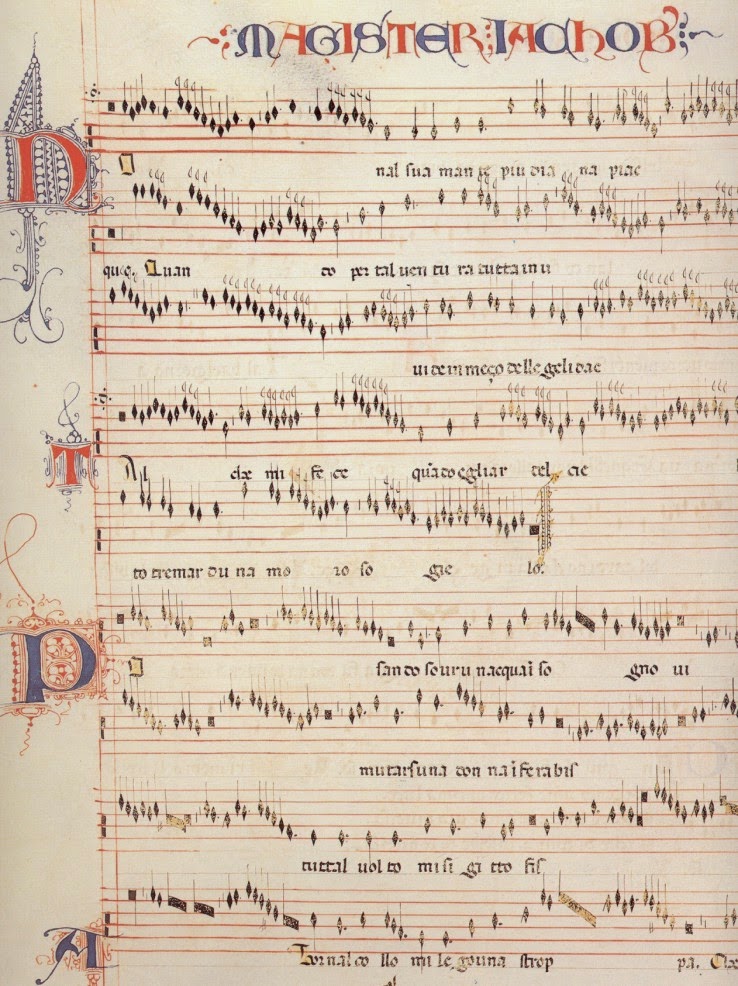 MAGISTER: IACHOB'
N O nal sua man te piu dia na piac
que. Quan to per tal ven tu ra tutta in u
ui de in meço delle geli dae
T Al che mi fe ce quādo egli ar del cie
to tremar du na mo ro so gie lo.
P O san do sovr u nacqua ī so gno ui
mutarsi una don na ī fera bis
tuttal uol to mi si gi tto fis
A Tornal co llo mi le gouna strop pa. Che